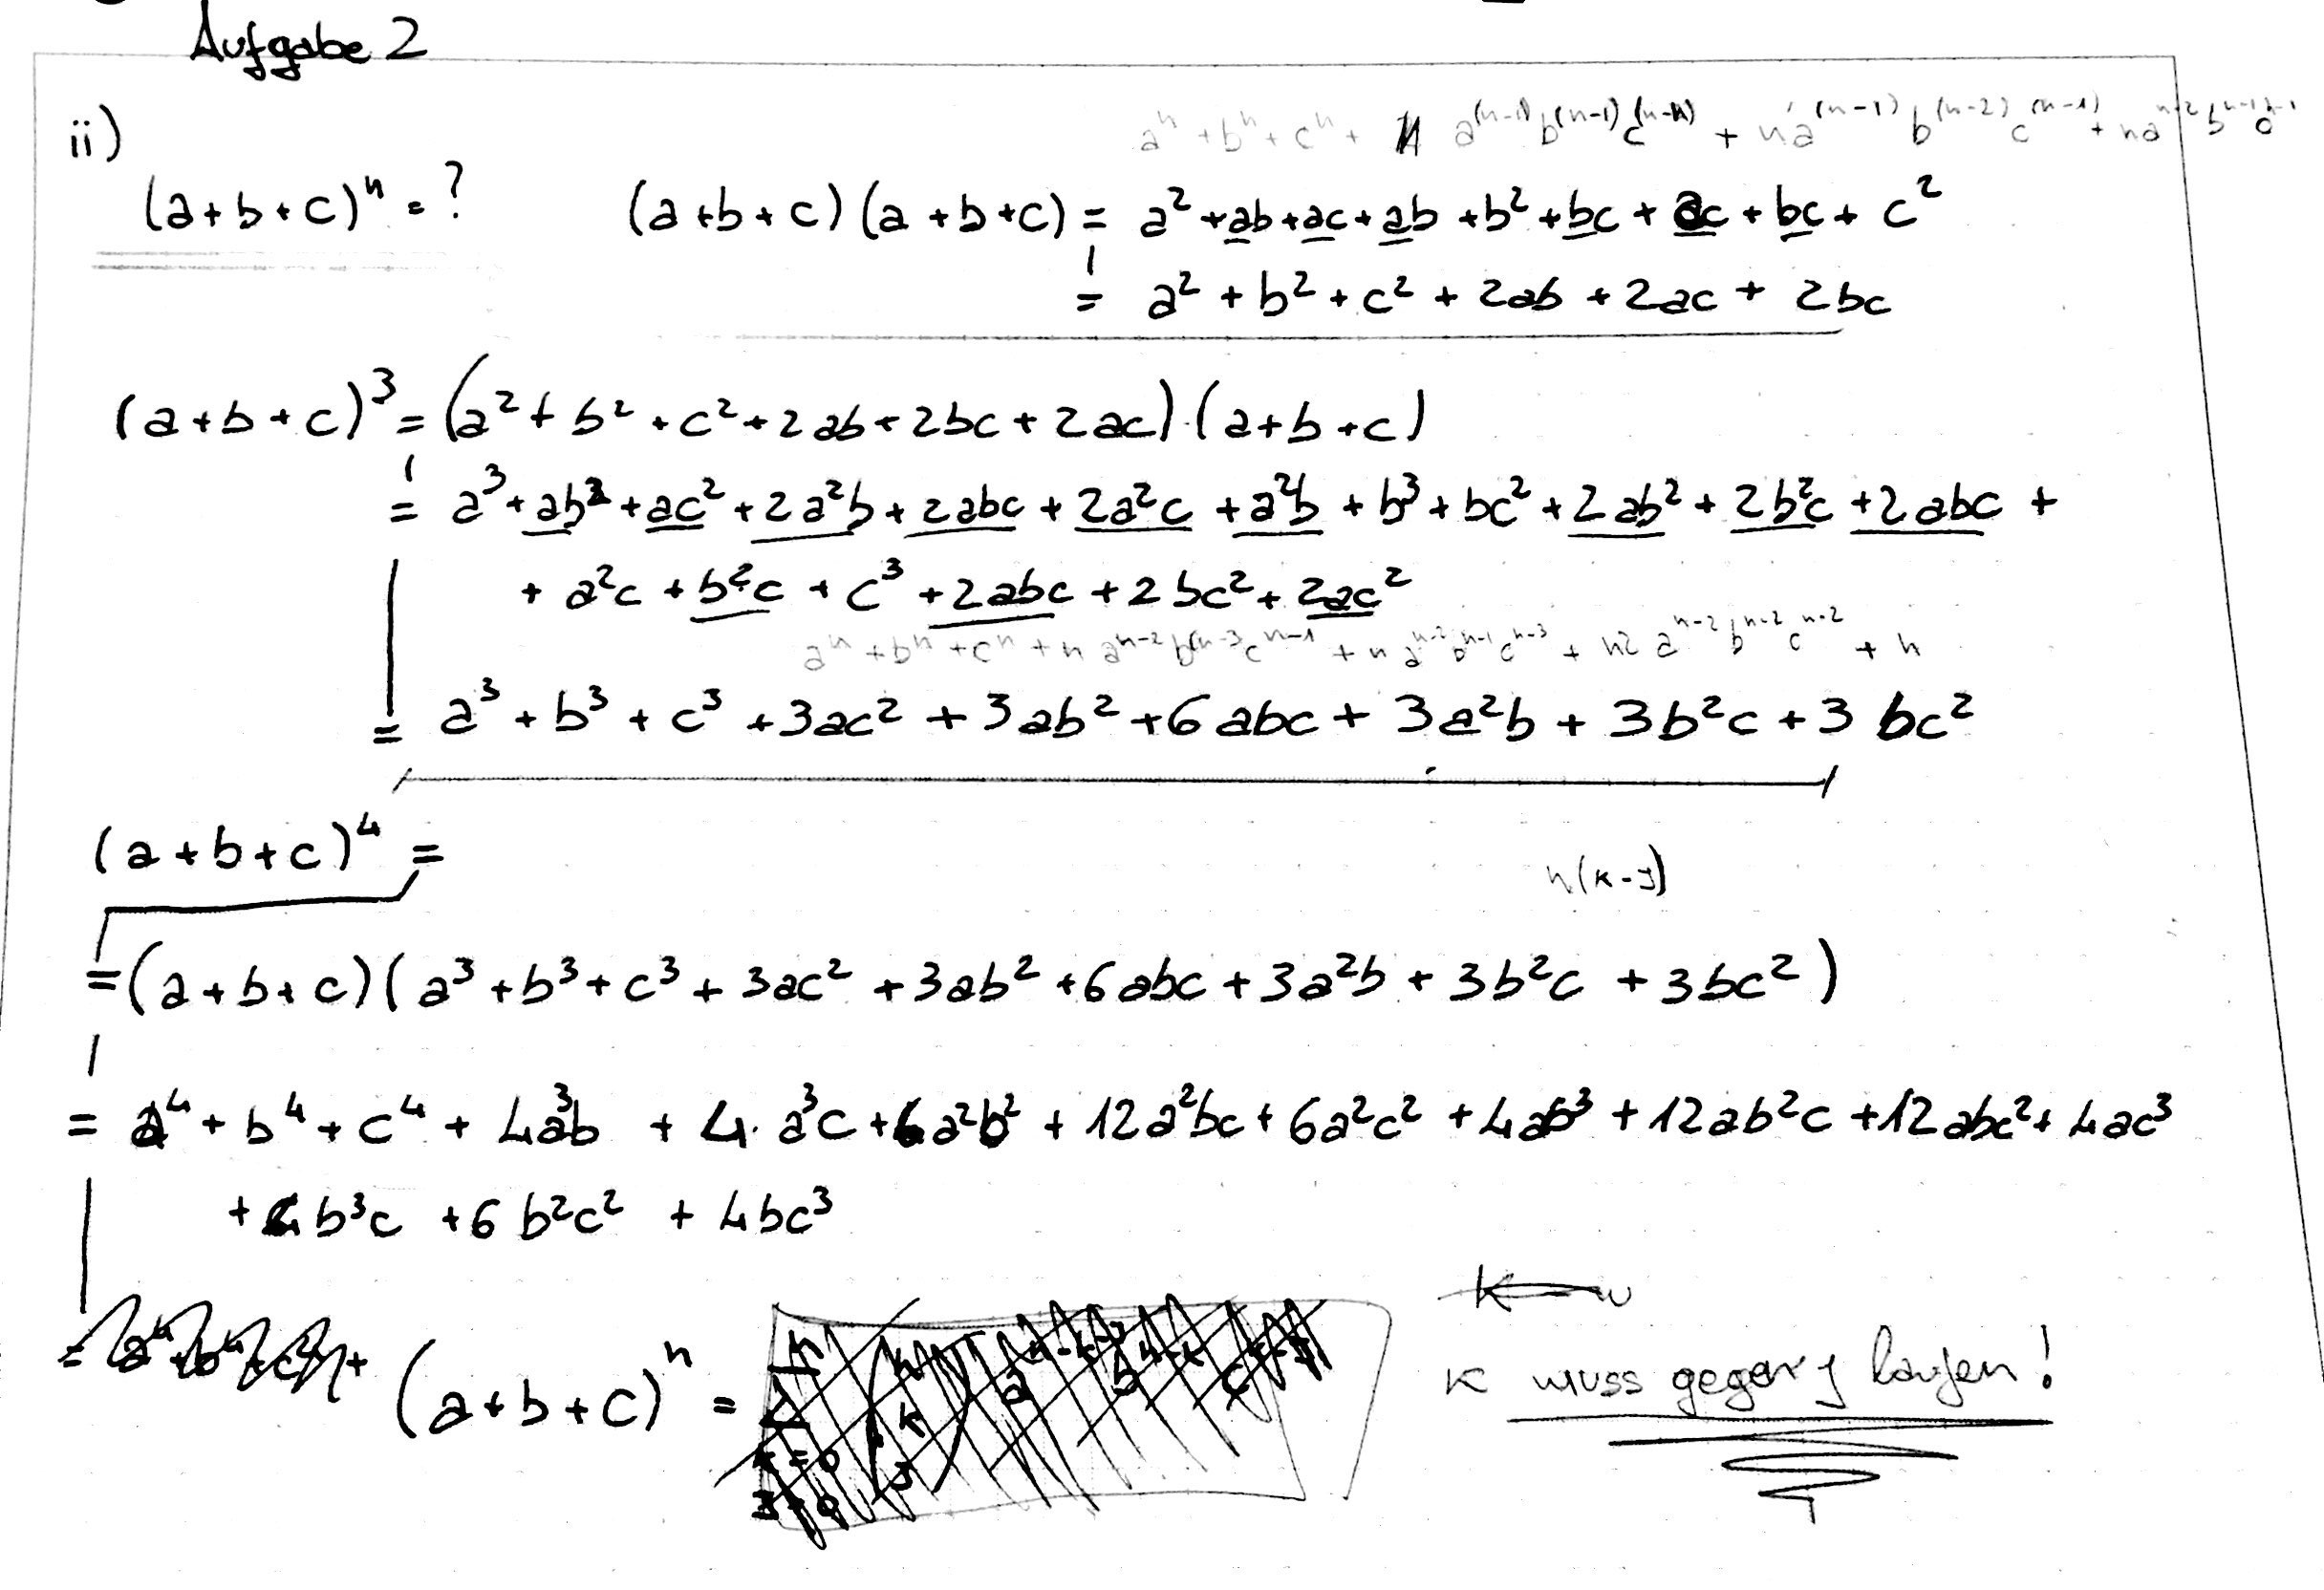 Aufgabe 2
ii)
aⁿ + bⁿ + cⁿ + n a⁽ⁿ⁻¹⁾ b⁽ⁿ⁻¹⁾ c⁽ⁿ⁻¹⁾ + n a⁽ⁿ⁻¹⁾ b⁽ⁿ⁻²⁾ c⁽ⁿ⁻¹⁾ + n aⁿ⁻² bⁿ⁻¹
(a+b+c)ⁿ = ? (a+b+c)(a+b+c) = a² + ab + ac + ab + b² + bc + ac + bc + c²
= a² + b² + c² + 2ab + 2ac + 2bc
(a+b+c)³ = (a² + b² + c² + 2ab + 2bc + 2ac)·(a+b+c)
= a³ + ab² + ac² + 2a²b + 2abc + 2a²c + a²b + b³ + bc² + 2ab² + 2b²c + 2abc +
+ a²c + b²c + c³ + 2abc + 2bc² + 2ac²
aⁿ + bⁿ + cⁿ + n aⁿ⁻² bⁿ⁻³ cⁿ⁻¹ + n aⁿ⁻² bⁿ⁻¹ cⁿ⁻³ + n2 aⁿ⁻² bⁿ⁻² cⁿ⁻² + n
= a³ + b³ + c³ + 3ac² + 3ab² + 6abc + 3a²b + 3b²c + 3bc²
(a+b+c)⁴ =
n(k-j)
= (a+b+c)(a³ + b³ + c³ + 3ac² + 3ab² + 6abc + 3a²b + 3b²c + 3bc²)
= a⁴ + b⁴ + c⁴ + 4a³b + 4·a³c + 6a²b² + 12a²bc + 6a²c² + 4ab³ + 12ab²c + 12abc² + 4ac³
+ 4b³c + 6b²c² + 4bc³
(a+b+c)ⁿ =
k muss gegen j laufen!